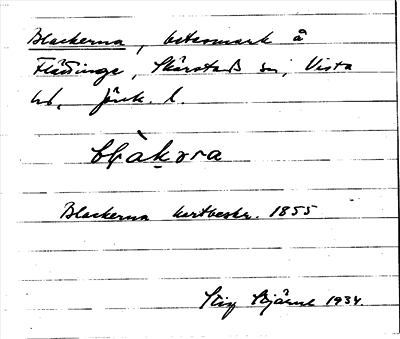 Blackerna, betesmark å
Flättinge, Skärstad sn, Vista
hd, Jönk. l.
Blackerna kartbeskr. 1855
Stig Bjärne 1934.